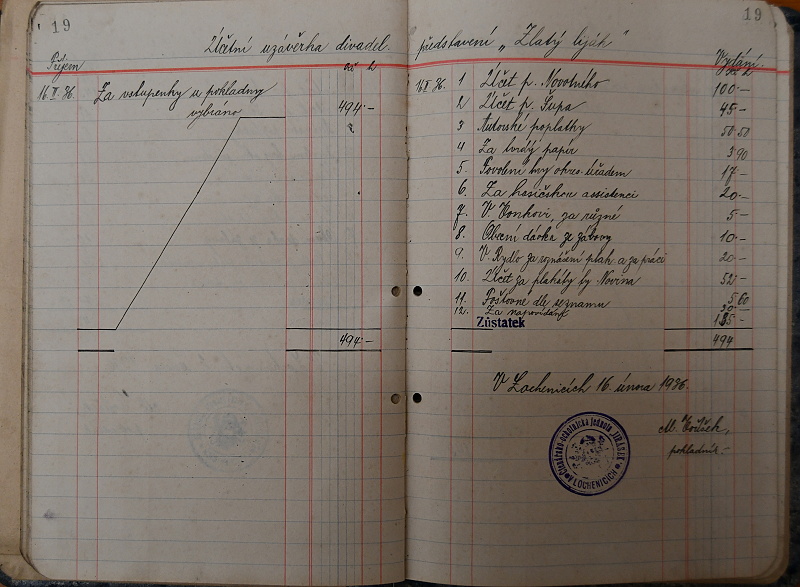 19
19
Účetní uzávěrka divadel. představení „Zlatý liják"
Příjem
Kč h
Vydání
Kč h
16 II 36. Za vstupenky u pokladny
vybráno 494·-
494·-
16 II 36. 1 Účet p. Novotného 100·-
2 Účet p. Šupa 45-
3 Autorské poplatky 50·50
4 Za tvrdý papír 3·90
5. Povolení hry okres. úřadem 17-
6. Za hasičskou assistenci 20·-
7. V. , za různé 5-
8. Obecní dávka ze zábavy 10·-
9. V. Rydlo za roznášení plak. a za práci 20·-
10. Účet za plakáty fy Novina 52·-
11. Poštovné dle seznamu 5.60
12. Za napovídání 30·-
Zůstatek 135-
494
V Lochenicích 16. února 1936.
Čtenářsko-ochotnická jednota JIRÁSEK
V LOCHENICÍCH
M.
pokladník.-